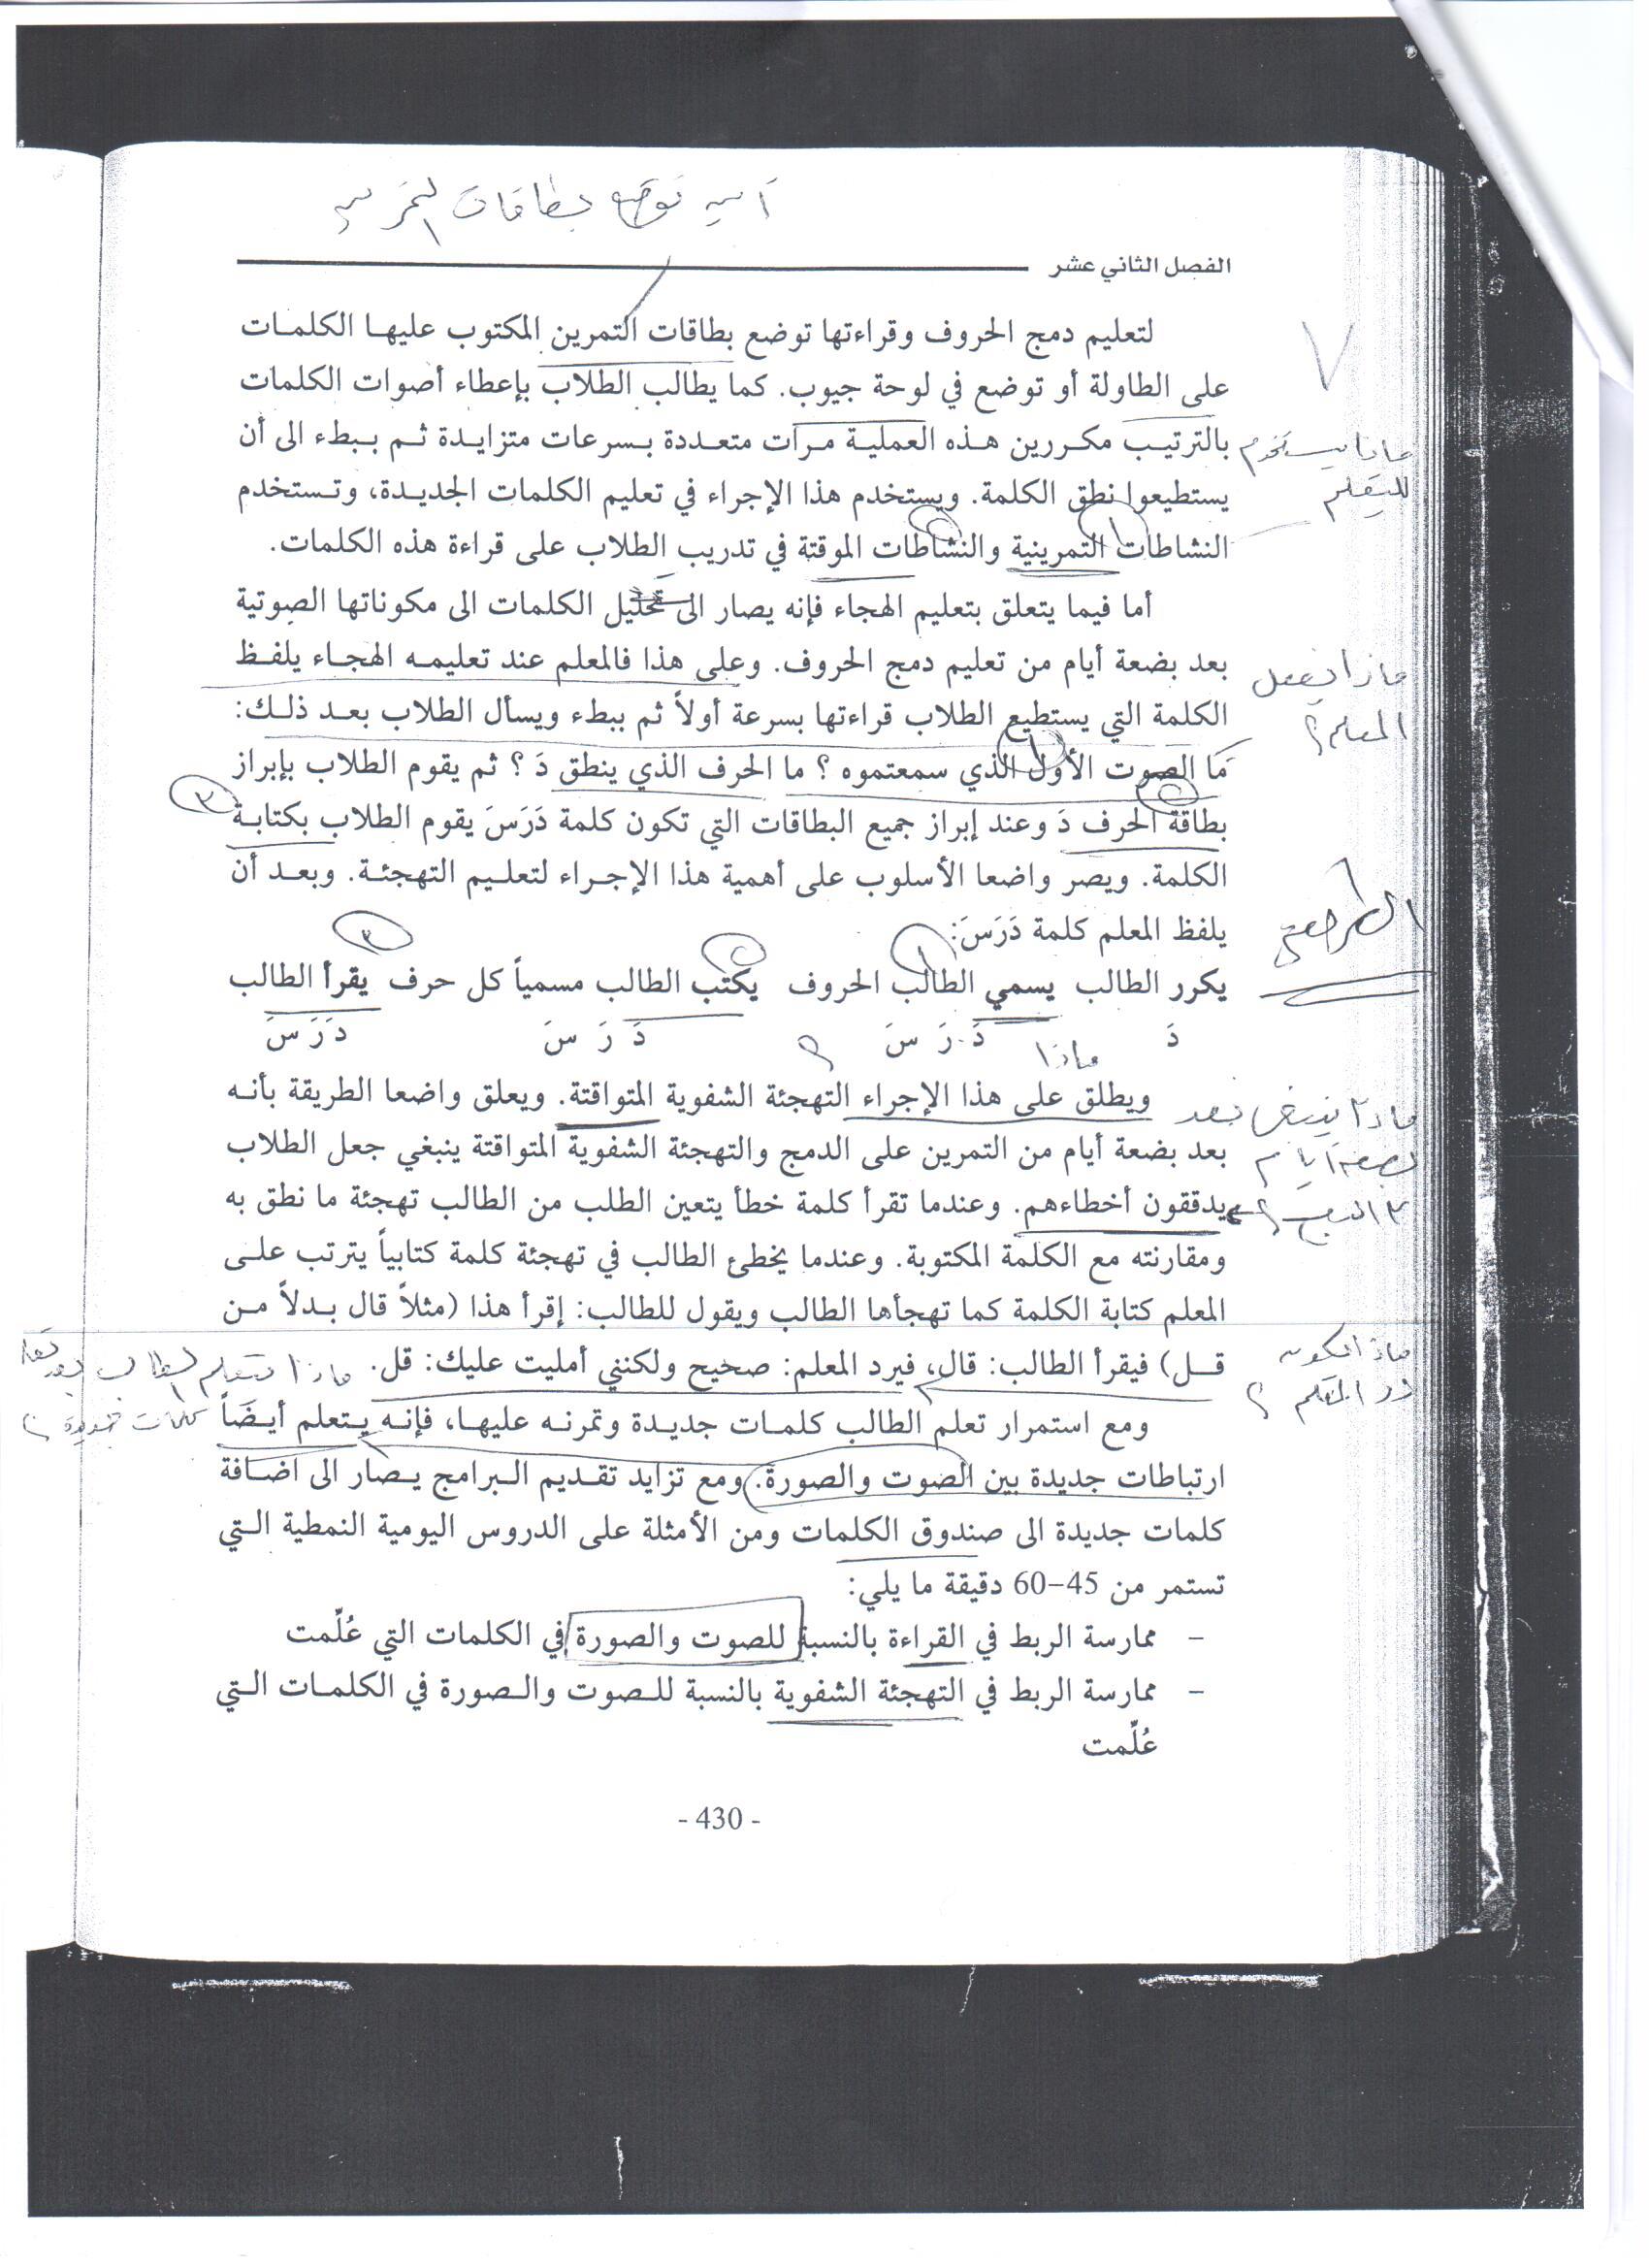 أين توضع بطاقات التمرين
الفصل الثاني عشر
لتعليم دمج الحروف وقراءتها توضع بطاقات التمرين المكتوب عليها الكلمات
على الطاولة أو توضع في لوحة جيوب. كما يطالب الطلاب بإعطاء أصوات الكلمات
بالترتيب مكررين هذه العملية مرات متعددة بسرعات متزايدة ثم ببطء الى أن
ماذا يستخدم
يستطيعوا نطق الكلمة. ويستخدم هذا الإجراء في تعليم الكلمات الجديدة، وتستخدم
النشاطات التمرينية والنشاطات الموقتة في تدريب الطلاب على قراءة هذه الكلمات.
أما فيما يتعلق بتعليم الهجاء فإنه يصار الى تحليل الكلمات الى مكوناتها الصوتية
بعد بضعة أيام من تعليم دمج الحروف. وعلى هذا فالمعلم عند تعليمه الهجاء يلفظ
ماذا يفعل
الكلمة التي يستطيع الطلاب قراءتها بسرعة أولاً ثم ببطء ويسأل الطلاب بعد ذلك:
المعلم؟
ما الصوت الأول الذي سمعتموه ؟ ما الحرف الذي ينطق دَ ؟ ثم يقوم الطلاب بإبراز
بطاقة الحرف دَ وعند إبراز جميع البطاقات التي تكون كلمة دَرَسَ يقوم الطلاب بكتابة
الكلمة. ويصر واضعا الأسلوب على أهمية هذا الإجراء لتعليم التهجئة. وبعد أن
يلفظ المعلم كلمة دَرَسَ:
يكرر الطالب يسمي الطالب الحروف يكتب الطالب مسمياً كل حرف يقرأ الطالب
دَ دَ رَ سَ دَ رَ سَ دَ رَ سَ
ماذا ؟
ويطلق على هذا الإجراء التهجئة الشفوية المتواقتة. ويعلق واضعا الطريقة بأنه
ماذا ينبغي بعد
بعد بضعة أيام من التمرين على الدمج والتهجئة الشفوية المتواقتة ينبغي جعل الطلاب
بضعة أيام
يدققون أخطاءهم. وعندما تقرأ كلمة خطأ يتعين الطلب من الطالب تهجئة ما نطق به
ومقارنته مع الكلمة المكتوبة. وعندما يخطئ الطالب في تهجئة كلمة كتابياً يترتب على
المعلم كتابة الكلمة كما تهجأها الطالب ويقول للطالب: إقرأ هذا (مثلاً قال بدلاً من
ماذا يكون
قل) فيقرأ الطالب: قال، فيرد المعلم: صحيح ولكنني أمليت عليك: قل.
دور المعلم ؟
ماذا يتعلم الطالب بعد
ومع استمرار تعلم الطالب كلمات جديدة وتمرنه عليها، فإنه يتعلم أيضاً
كلمات جديدة ؟
ارتباطات جديدة بين الصوت والصورة. ومع تزايد تقديم البرامج يصار الى اضافة
كلمات جديدة الى صندوق الكلمات ومن الأمثلة على الدروس اليومية النمطية التي
تستمر من 45–60 دقيقة ما يلي:
– ممارسة الربط في القراءة بالنسبة للصوت والصورة في الكلمات التي عُلّمت
– ممارسة الربط في التهجئة الشفوية بالنسبة للصوت والصورة في الكلمات التي
عُلّمت
- 430 -